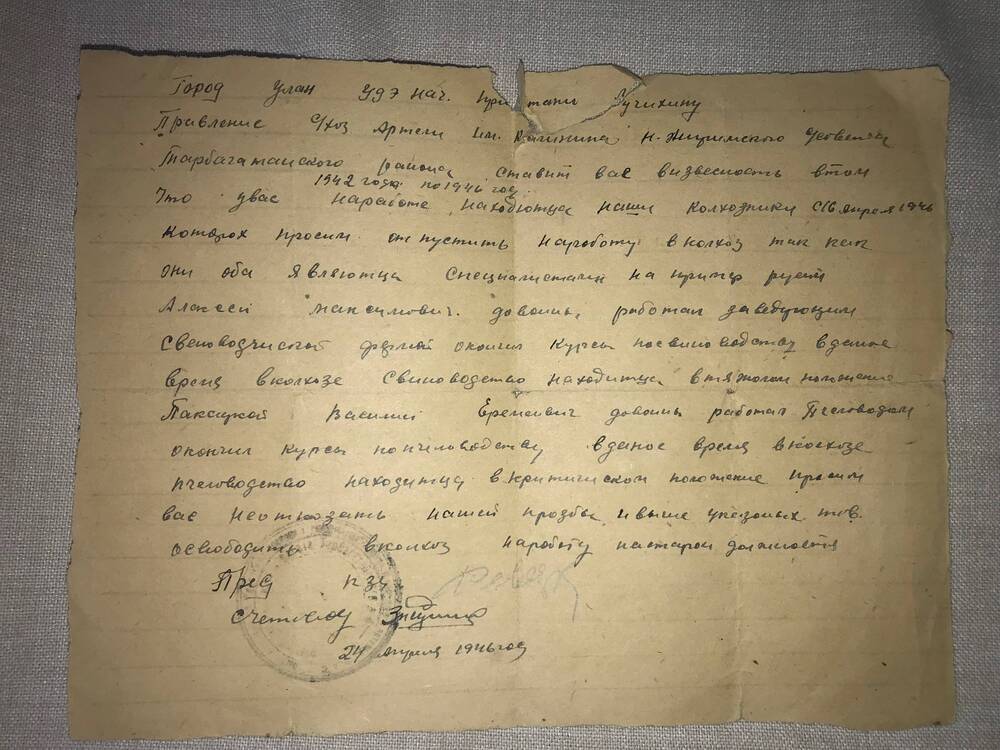 Город Улан Удэ нач. Сучихину
Правление С/хоз Артели им. Калинина Н-Жиримского
Тарбагатайского района ставит вас визвесность втом
1942 года по 1946 год.
Что увас наработе находютца наши Колхозники С16 апреля 1946
Которох просим отпустить наработу вколхоз так как
они оба являютца специалистами на пример
Алексей максимович. довойны работал заведующим
Свеноводчиской фермой окончил Курсы посвиноводству вданое
время вколхозе Свиноводство находитца втяжолом положение
Василий Еремеевич довойны работал Пчеловодом
окончил курсы попчеловодству вданое время вколхозе
пчеловодство находитца вкритичиском положение просим
вас неотказать нашей прозбы ивыше указоных тов.
освободить вколхоз наработу настарои должностя
Пред
счетовод
24 апреля 1946 год